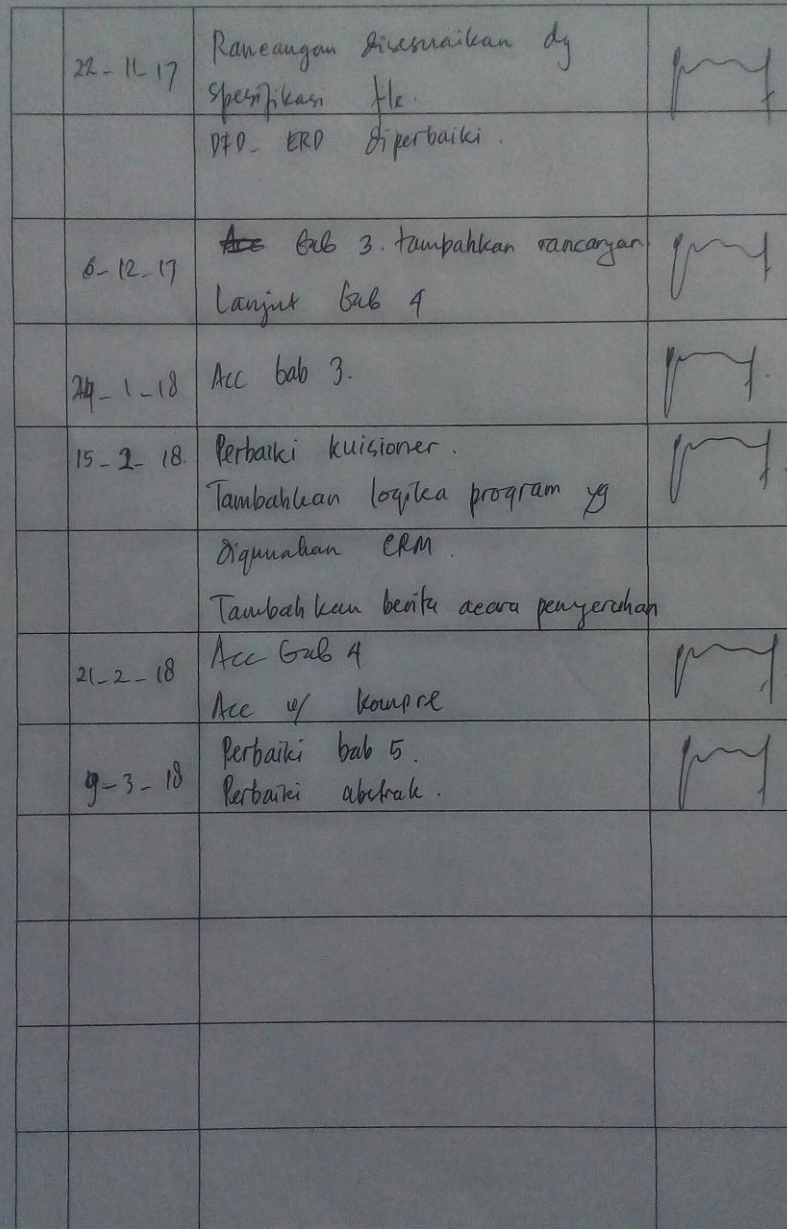 22-11-17 Rancangan disesuaikan dg
spesifikasi
DFD- ERD diperbaiki.
6-12-17 Acc bab 3. tambahkan rancangan
Lanjut bab 4
24-1-18 Acc bab 3.
15-2-18. Perbaiki kuisioner.
Tambahkan logika program yg
digunakan CRM.
Tambahkan berita acara penyerahan
21-2-18 Acc bab 4
Acc u/ kompre
9-3-18 Perbaiki bab 5.
Perbaiki abstrak.